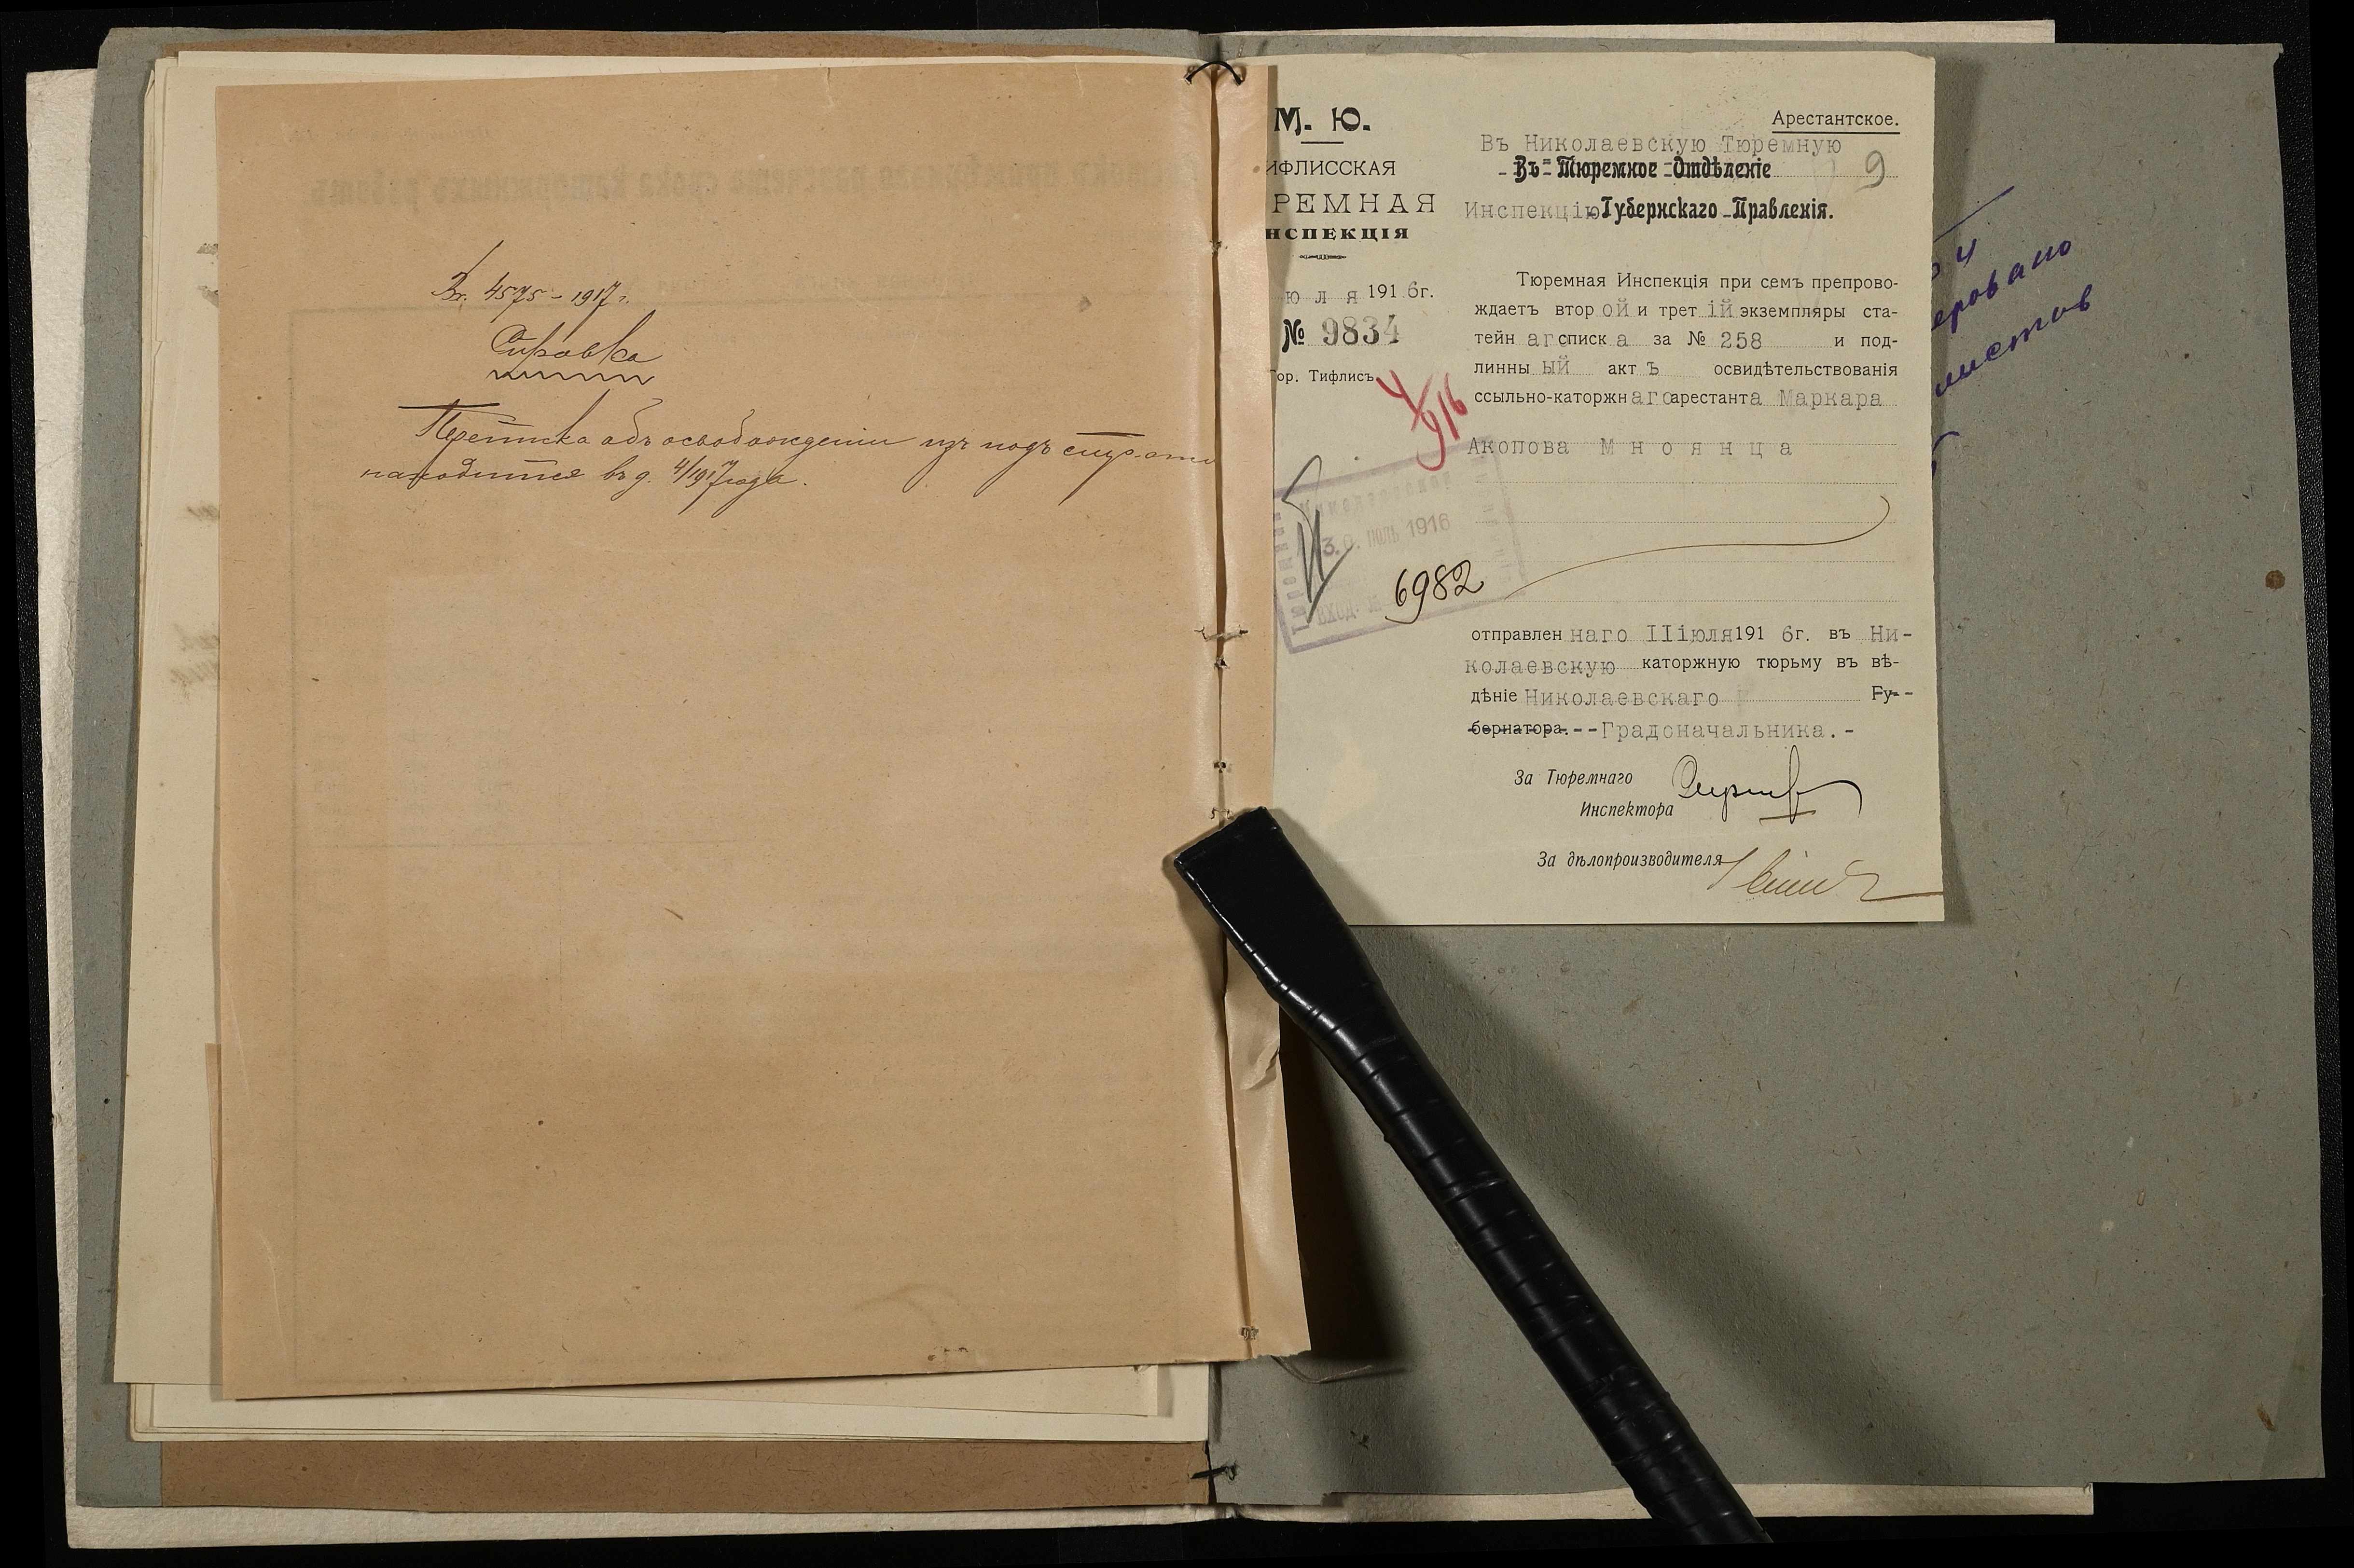 Вх. 4575 – 1917 г.
Справка
Переписка объ освобожденіи изъ подъ стражи
находится въ д. 4/1917 года.
М. Ю.
ИФЛИССКАЯ
РЕМНАЯ
НСПЕКЦІЯ
юля 1916г.
№ 9834
Гор. Тифлисъ
4/916
30. ІЮЛЬ 1916
ВХОД. №
6982
Арестантское.
9
Въ Николаевскую Тюремную
Въ Тюремное Отдѣленіе
Инспекцію Губернскаго Правленія.
Тюремная Инспекція при семъ препрово-
ждаетъ второй и третій экземпляры ста-
тейнаго списка за № 258 и под-
линный актъ освидѣтельствованія
ссыльно-каторжнаго арестанта Маркара
Акопова Мноянца
отправленнаго II іюля 1916г. въ Ни-
колаевскую каторжную тюрьму въ вѣ-
дѣніе Николаевскаго Гу-
бернатора.--Градоначальника.-
За Тюремнаго
Инспектора
За дѣлопроизводителя
листов